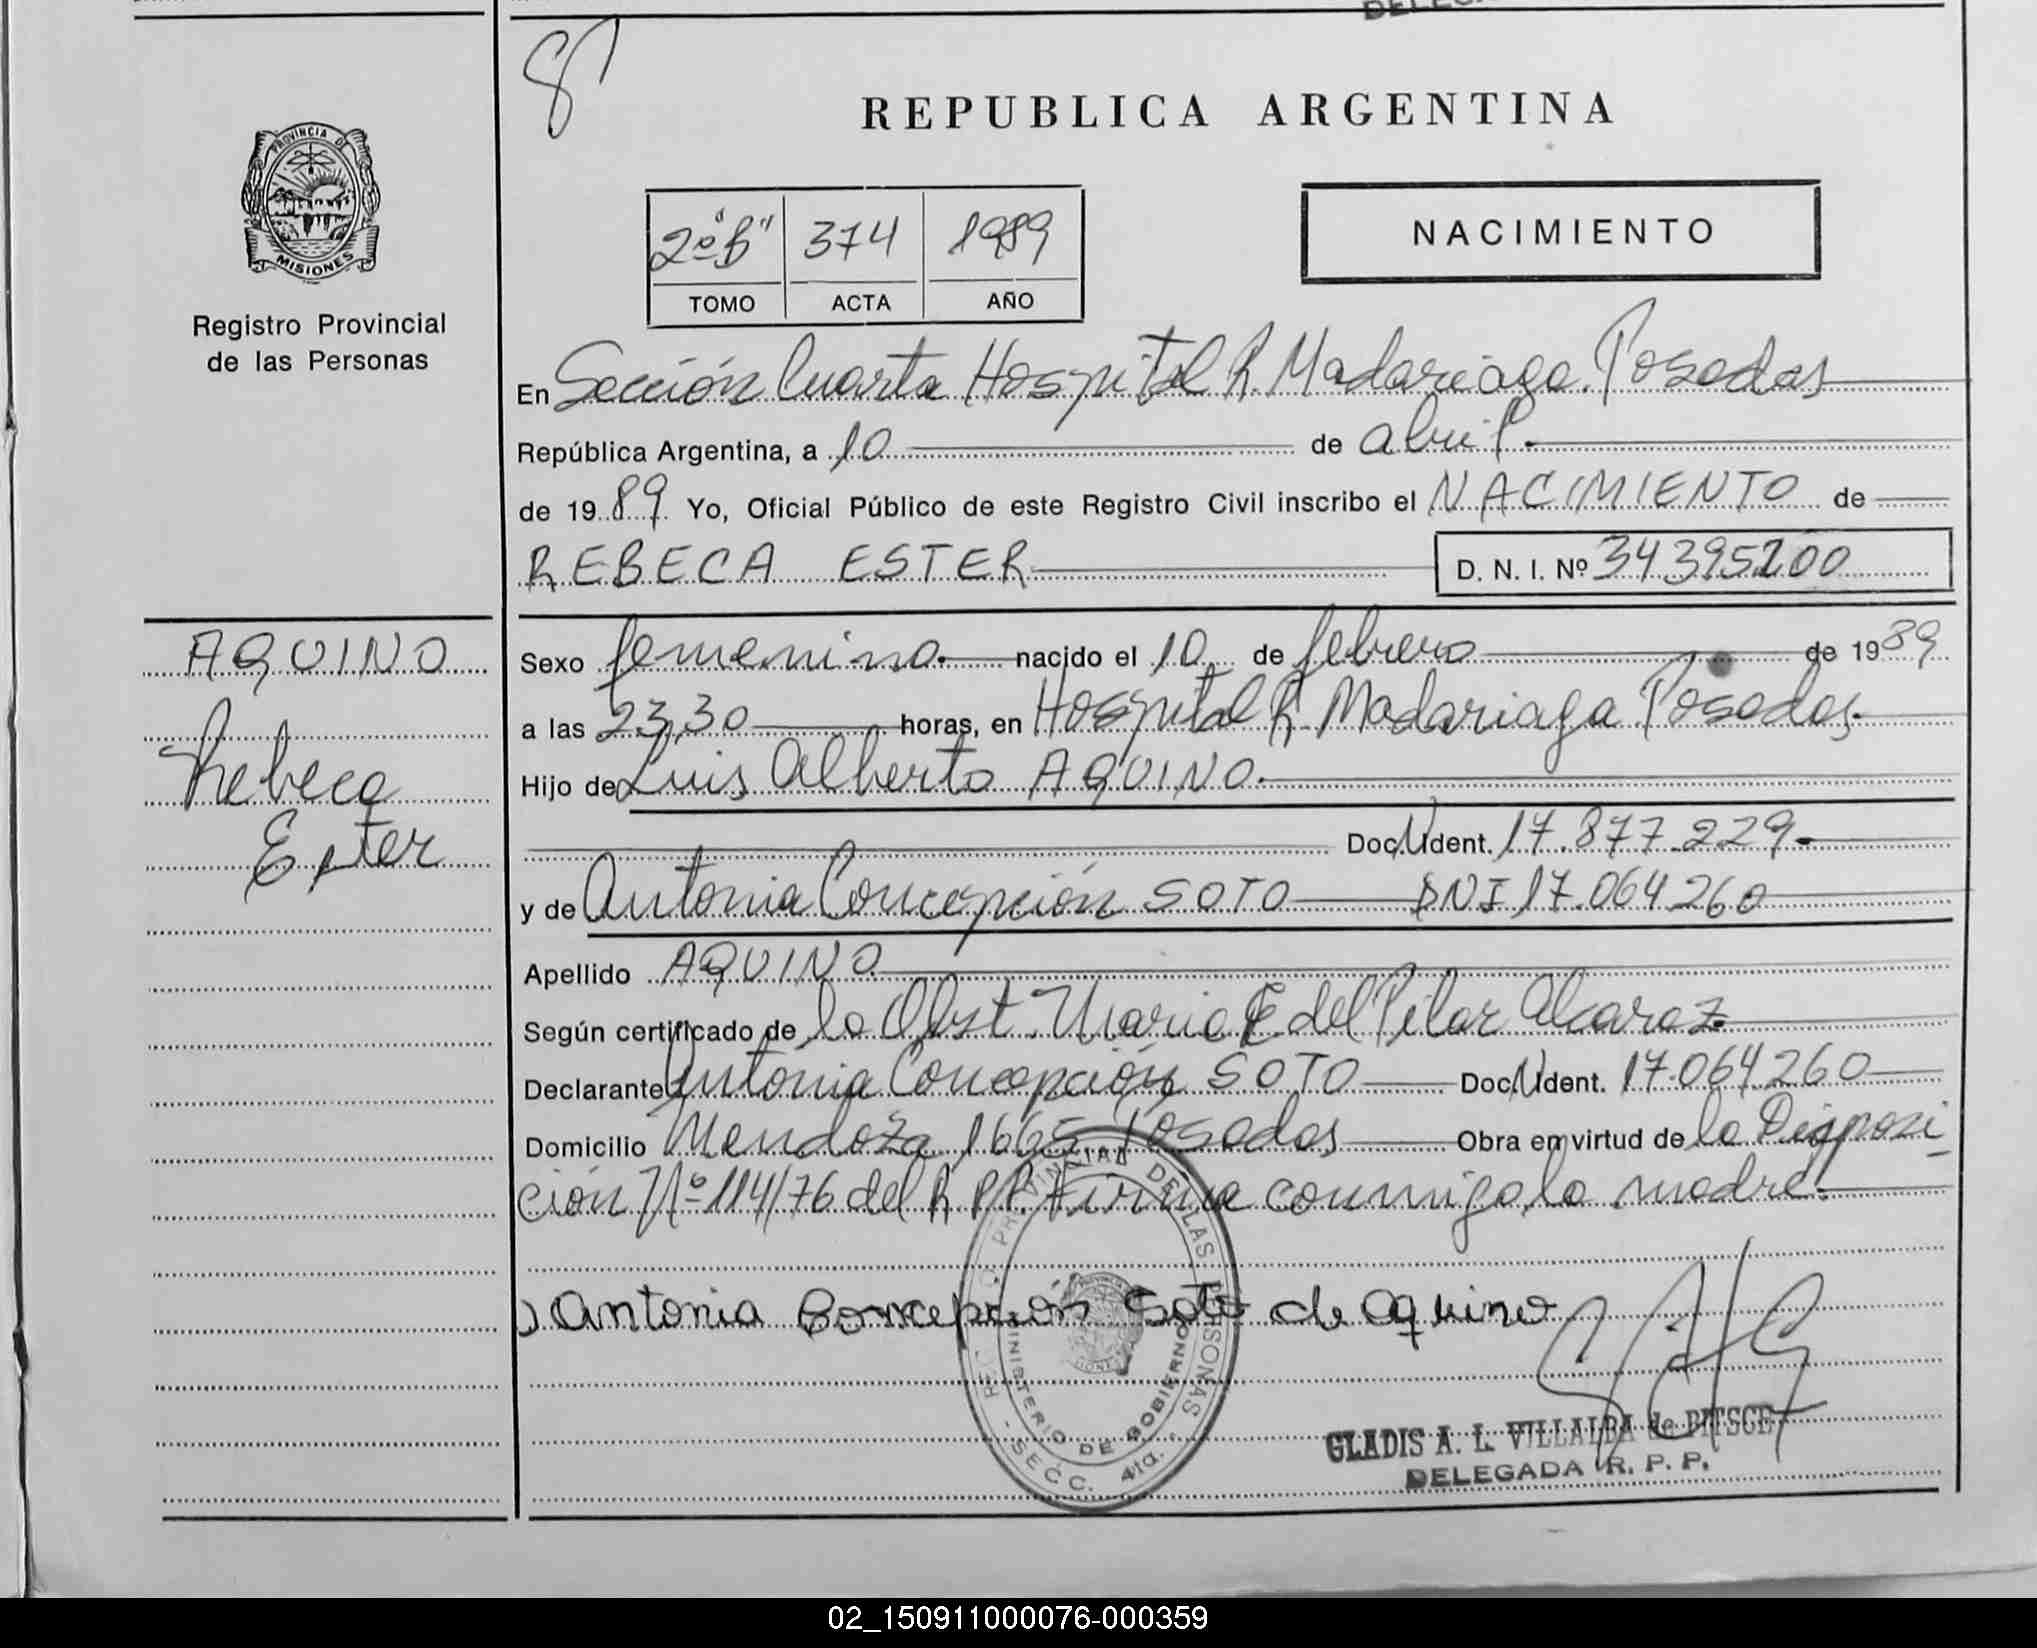 REPUBLICA ARGENTINA
PROVINCIA DE
MISIONES
Registro Provincial
de las Personas
2º "B" 374 1989
TOMO ACTA AÑO
NACIMIENTO
En Sección Cuarta Hospital R. Madariaga. Posadas
República Argentina, a 10 de abril.
de 1989 Yo, Oficial Público de este Registro Civil inscribo el NACIMIENTO de
REBECA ESTER D. N. I. Nº 34395200
AQUINO
Rebeca
Ester
Sexo femenino. nacido el 10 de febrero de 1989
a las 23,30 horas, en Hospital R. Madariaga Posadas.
Hijo de Luis Alberto AQUINO.
Doc. N Ident. 17.877.229.
y de Antonia Concepción SOTO DNI 17.064.260
Apellido AQUINO.
Según certificado de la Obst. Maria E del Pilar Alcaraz.
Declarante Antonia Concepción SOTO Doc. N Ident. 17.064.260
Domicilio Mendoza 1665 Posadas Obra en virtud de la Disposi-
ción Nº 114/76 del R.P.P. Firma conmigo la madre.
Antonia Concepción Soto de Aquino
PROVINCIAL DE LAS PERSONAS
MINISTERIO DE GOBIERNO
SECC. 4ta.
GLADIS A. L. VILLALBA de PITSCE
DELEGADA R. P. P.
02_150911000076-000359